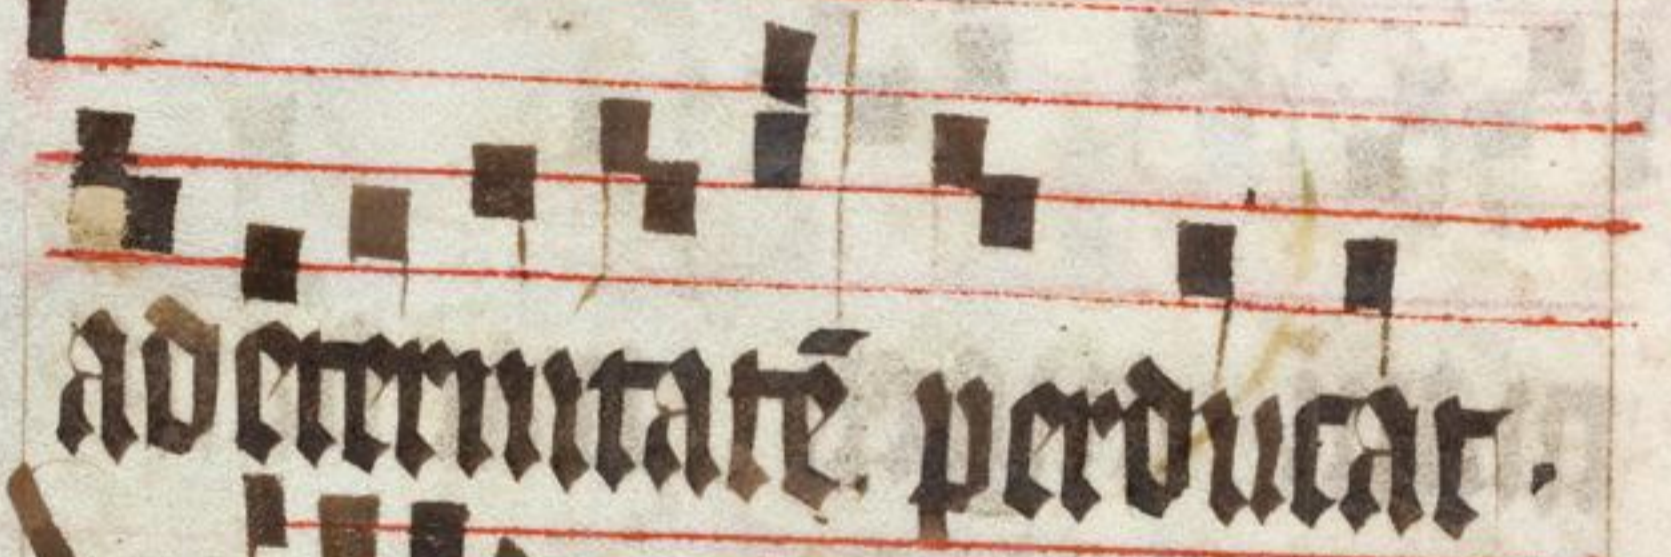 ad eternitatē perducat.